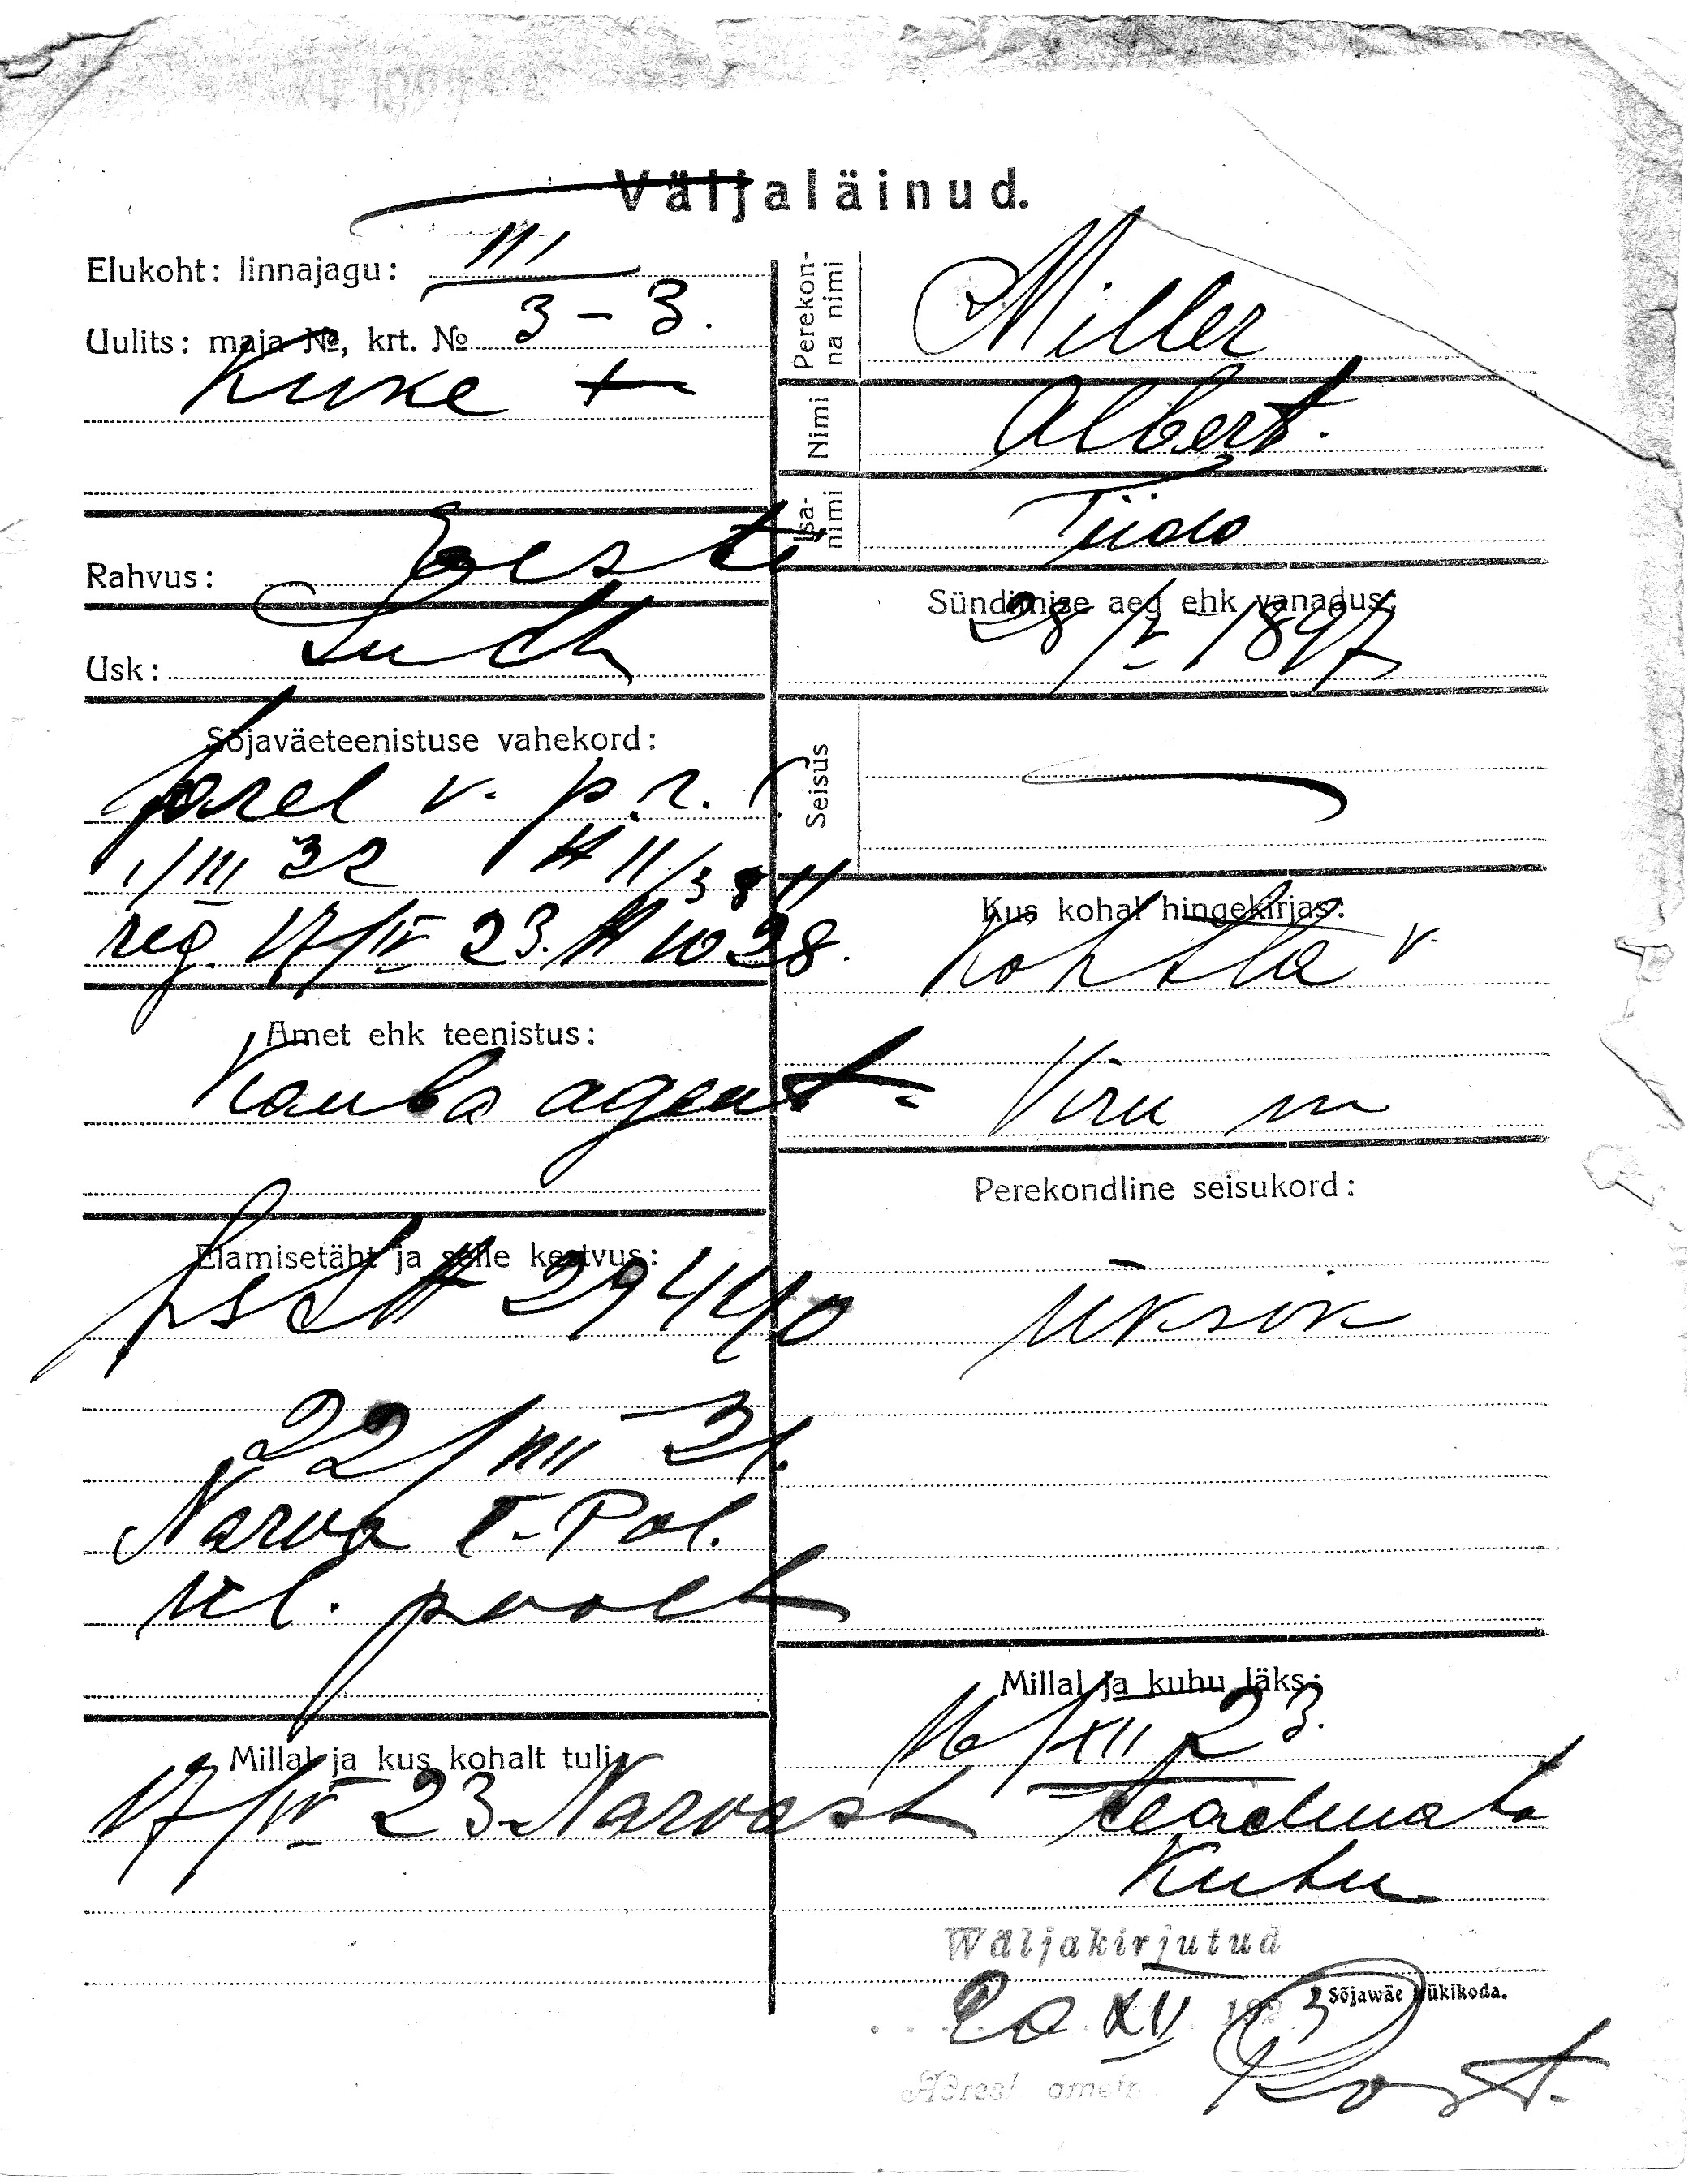 Väljaläinud.
Elukoht: linnajagu: III
Uulits: maja №, krt. № 3 – 3.
Kuke t
Rahvus: Eesti
Usk: Luth
Sõjaväeteenistuse vahekord:
v. p. r.
1/III 22 № 11/3811
reg. 17/IV 23. № 1028.
Amet ehk teenistus:
Kauba agent
Elamisetäht ja selle kestvus:
№ 29440
22/VIII 21.
Narva I. Pol.
ül. poolt
Millal ja kus kohalt tuli:
17/IV 23 Narvast
Perekonna nimi Miller
Nimi Albert.
Isanimi Tiido
Sündimise aeg ehk vanadus:
28/V 1897
Seisus
Kus kohal hingekirjas:
Kohtla v.
Viru m
Perekondline seisukord:
Üksik
Millal ja kuhu läks:
16/XII 23.
teadmata
kuhu
Wäljakirjutud
20. XII 1923
Sõjawäe trükikoda.